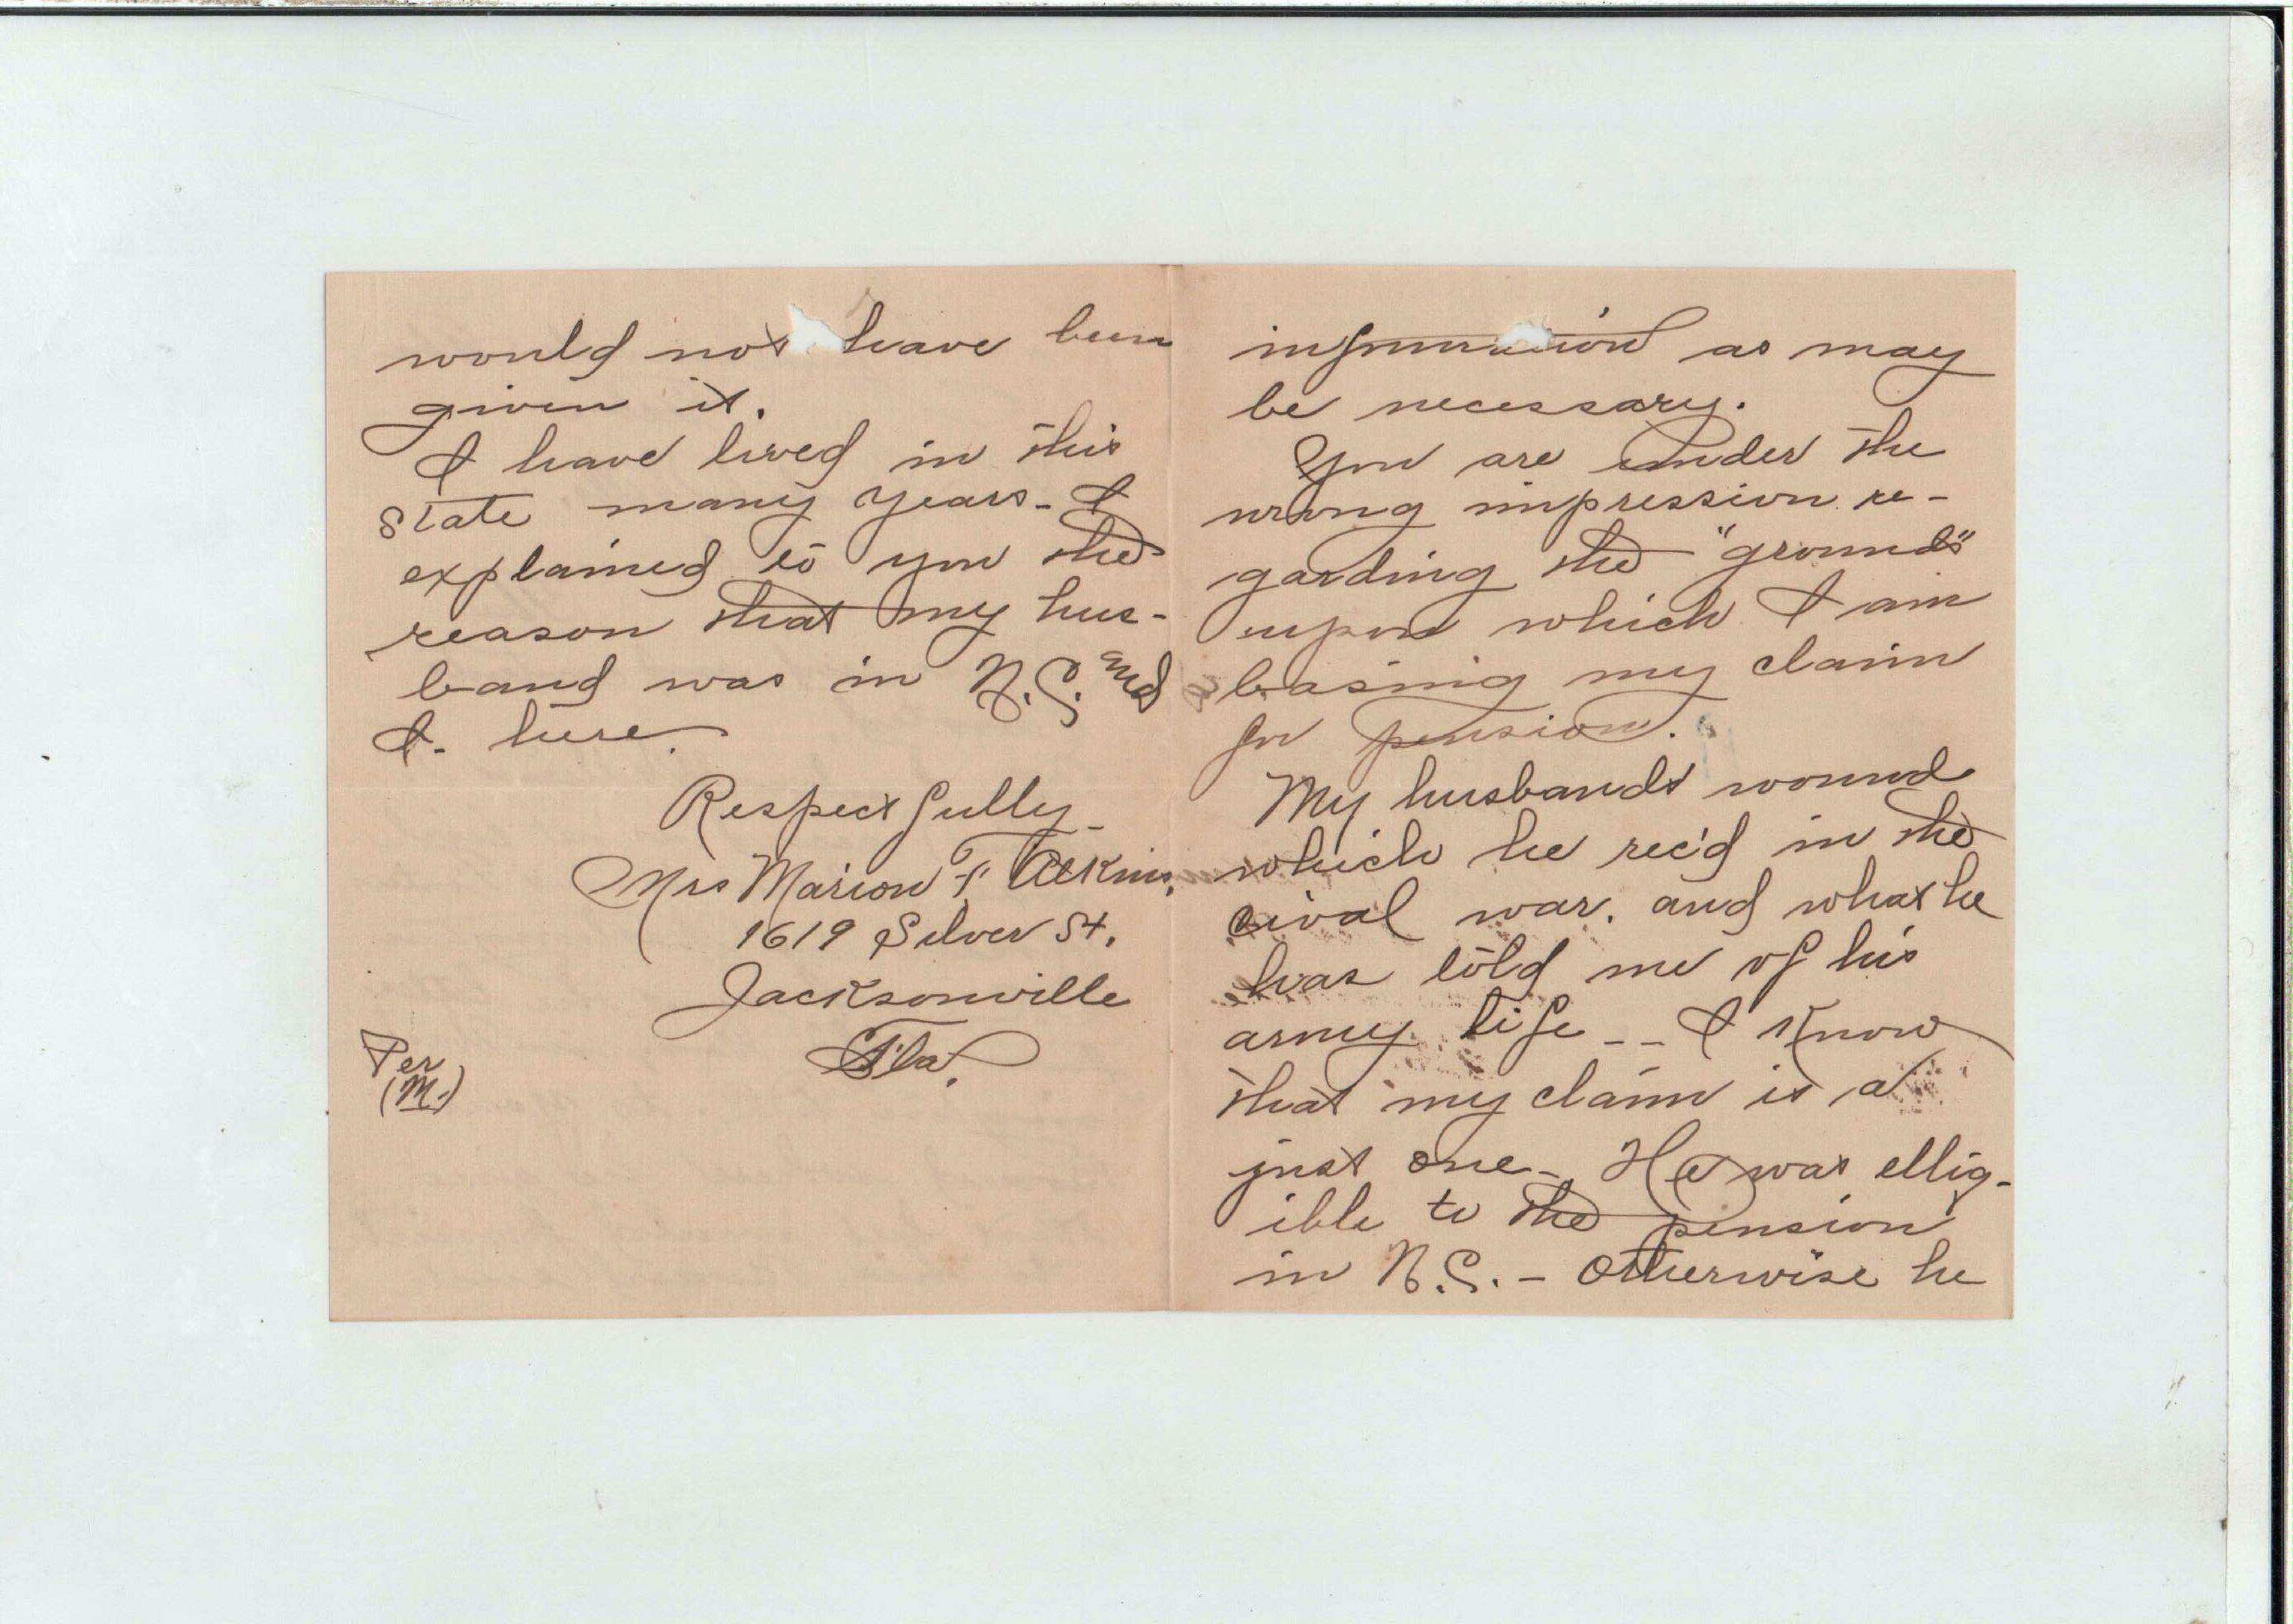 information as may
be necessary.
You are under the
wrong impression re-
garding the "grounds"
upon which I am
basing my claim
for pension.
My husbands wound
which he rec'd in the
cival war. and what he
has told me of his
army life -- I know
that my claim is a
just one - He was ellig-
ible to the pension
in N.C. - otherwise he
would not have been
given it.
I have lived in this
state many years - I
explained to you the
reason that my hus-
band was in N.C. and
I - here.
Respectfully -
Mrs Marion F. Atkins.
1619 Silver St.
Jacksonville
Fla.
Per
(M.)